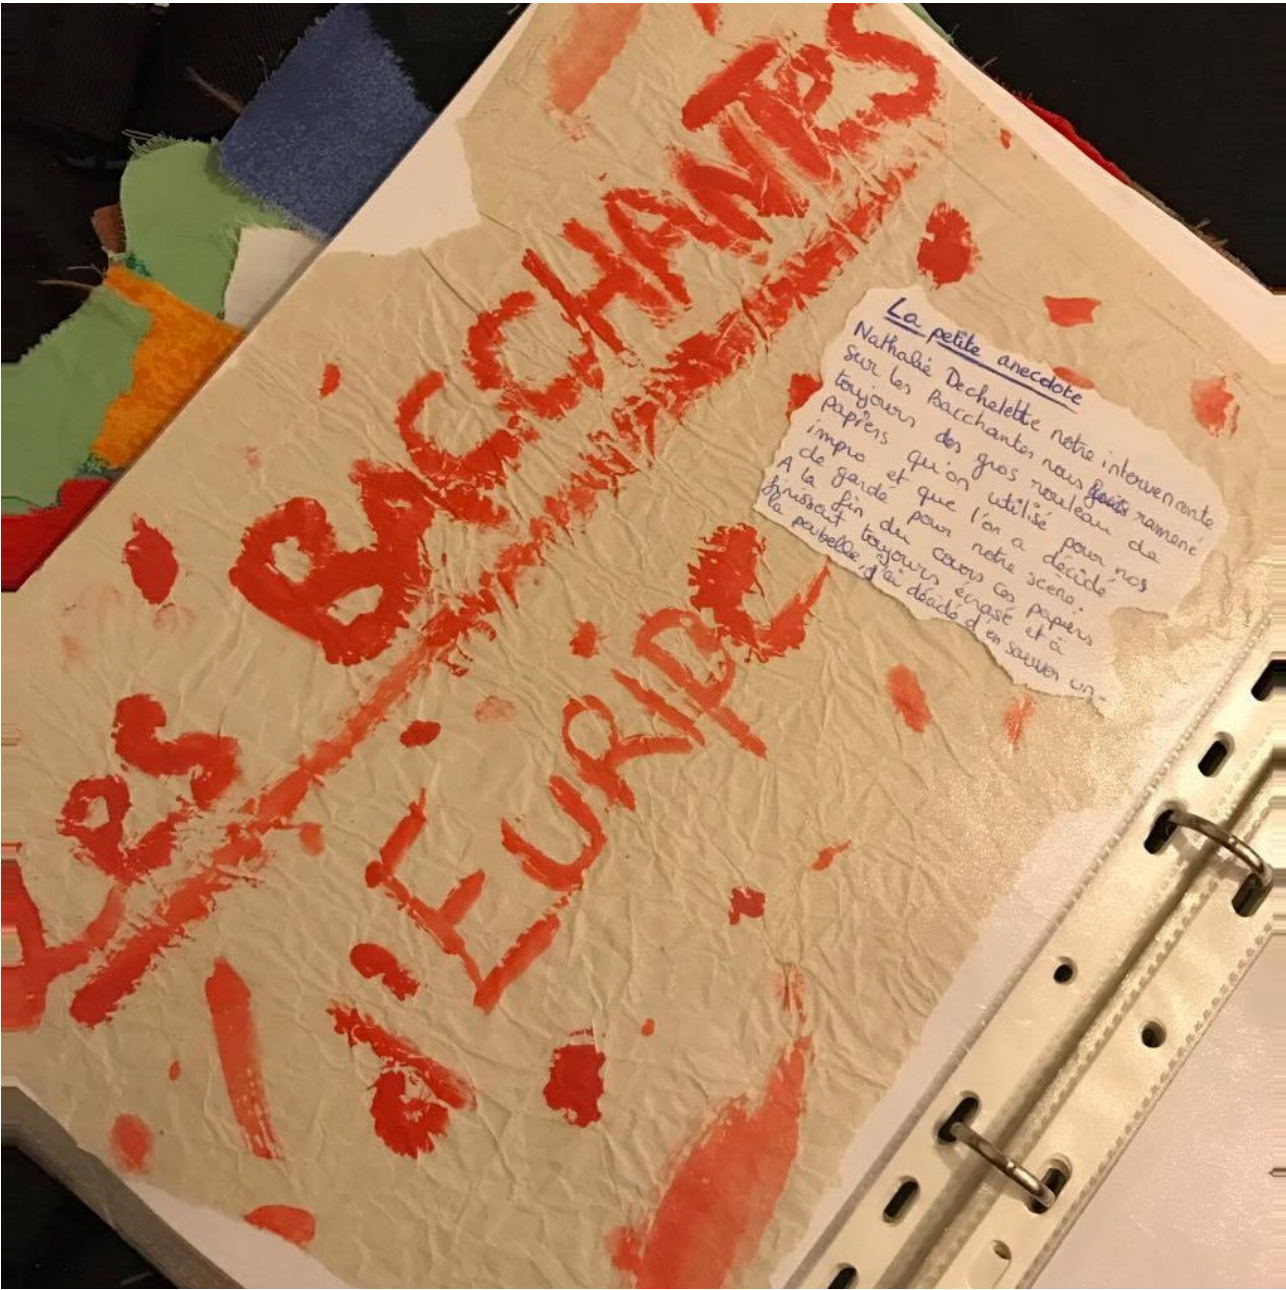 Les BACCHANTES
d'EURIPIDE
La petite anecdote
Nathalie Dechelette notre intervenante
sur les Bacchantes nous ramené
toujours des gros rouleau de
papiers qu'on utilisé pour nos
impro et que l'on a décidé
de gardé pour notre scène.
A la fin du cours ces papiers
finissant toujours écrasé et à
la poubelle, j'ai décidé d'en sauver un.